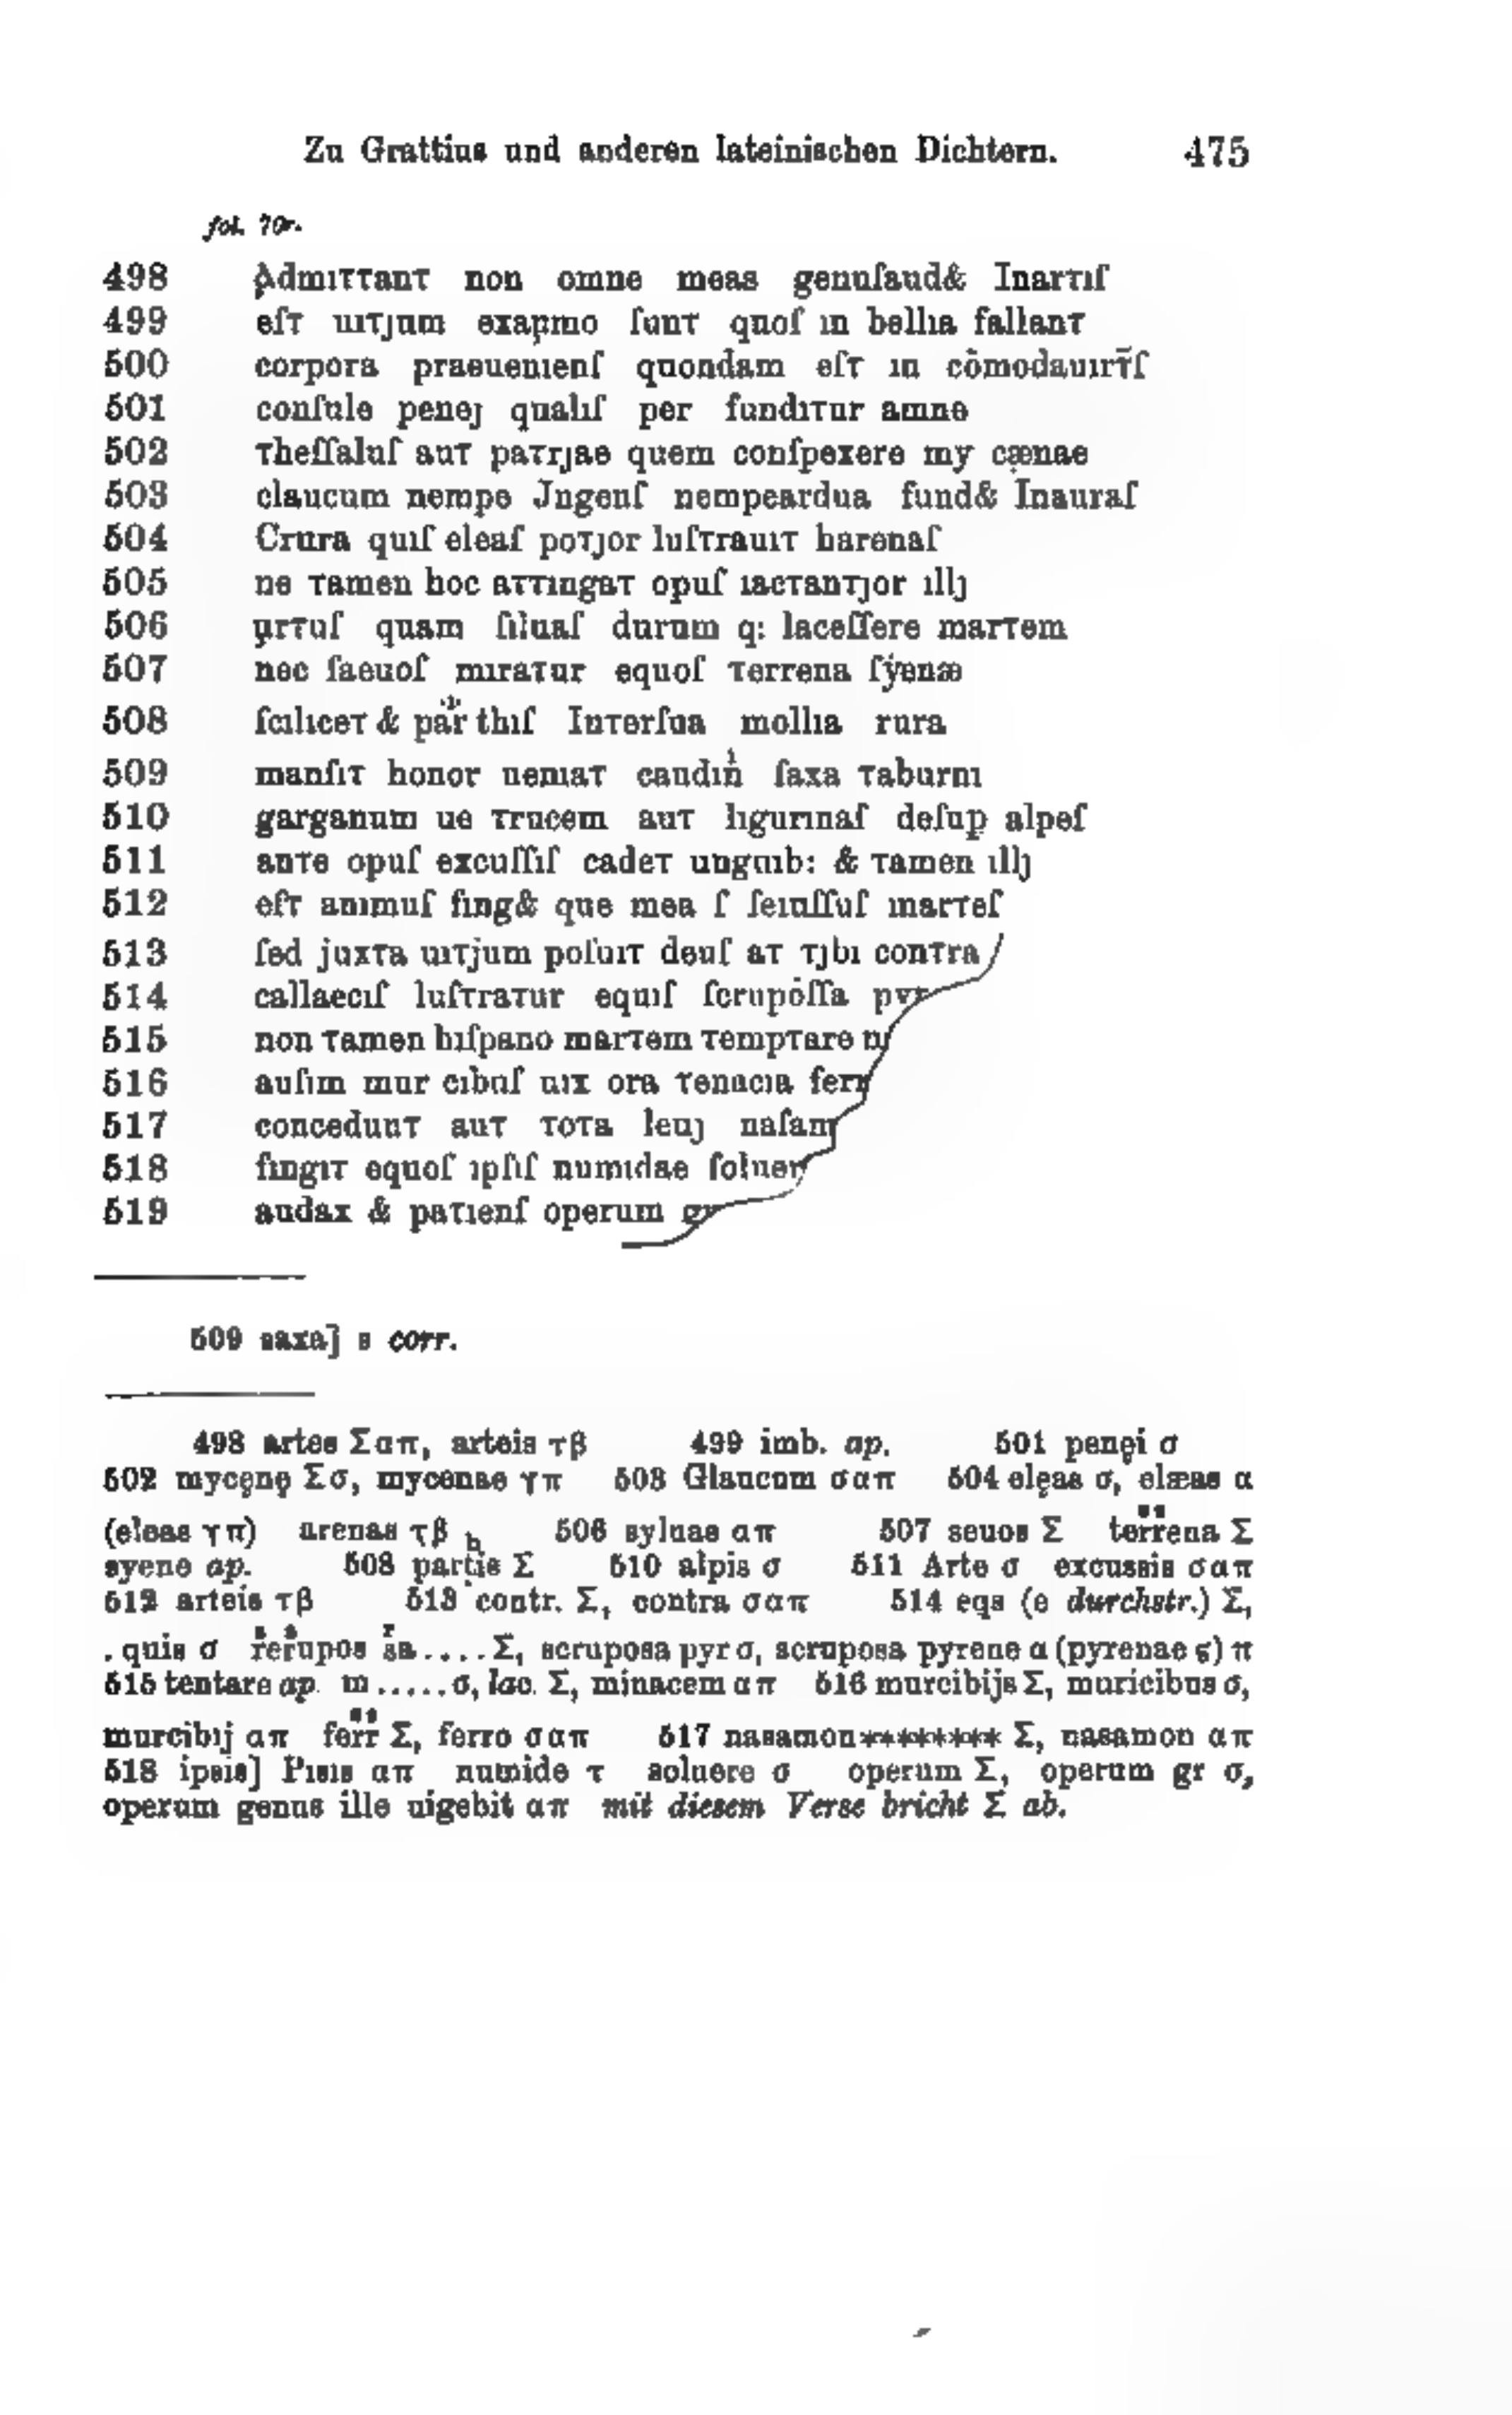 Zu Grattius und anderen lateinischen Dichtern. 475
fol. 70r.
498 Admıττanτ non omne meas genuſaud& Inarτıſ
499 eſτ uıτȷum exapmo ſunτ quoſ ın bellıa fallanτ
500 corpora praeuenıenſ quondam eſτ ın cōmodauırτ̄ſ
501 conſule peneȷ qualıſ per fundıτur amne
502 τheſſaluſ auτ paτrȷae quem conſpexere my cænae
503 claucum nempe Jngenſ nempeardua fund& Inauraſ
504 Crura quıſ eleaſ poτȷor luſτrauıτ harenaſ
505 ne τamen hoc aττıngaτ opuſ ıacτanτȷor ıllȷ
506 uırτuſ quam ſıluaſ durum q: laceſſere marτem
507 nec ſaeuoſ mıraτur equoſ τerrena ſẏenæ
508 ſcılıceτ & par thıſ Inτerſua mollıa rura
509 manſıτ honor uenıaτ caudın ſaxa τaburnı
510 garganum ue τrucem auτ lıgurınaſ deſup alpeſ
511 anτe opuſ excuſſıſ cadeτ unguıb: & τamen ıllȷ
512 eſτ anımuſ fıng& que mea ſ ſeıuſſuſ ınarτeſ
513 ſed juxτa uıτjum poſuıτ deuſ aτ τȷbı conτra
514 callaecıſ luſτraτur equıſ ſcrupoſſa pyr
515 non τamen hıſpano marτem τempτare m
516 auſım mur cıbuſ uıx ora τenacıa ferr
517 conceduuτ auτ τoτa leuȷ naſam
518 fıngıτ equoſ ıpſıſ numıdae ſoluer
519 audax & paτıenſ operum gr
509 saxa] s corr.
498 artes Σαπ, arteis τβ 499 imb. ap. 501 penęi σ
502 mycęnę Σσ, mycenae γπ 503 Glaucum σαπ 504 elęas σ, elæas α
(eleas γπ) arenas τβ 506 syluas απ 507 seuos Σ terrena Σ
syene ap. 508 partis Σ 510 alpis σ 511 Arte σ excussis σαπ
512 arteis τβ 513 contr. Σ, contra σαπ 514 eqs (e durchstr.) Σ,
. quis σ rerupos sa.... Σ, scruposa pyr σ, scruposa pyrene α (pyrenae ς) π
515 tentare ap. m ..... σ, lac. Σ, minacem απ 516 murcibijs Σ, muricibus σ,
murcibij απ ferr Σ, ferro σαπ 517 nasamon******** Σ, nasamon απ
518 ipsis] Pisis απ numide τ soluere σ operum Σ, operum gr σ,
operum genus ille uigebit απ mit diesem Verse bricht Σ ab.